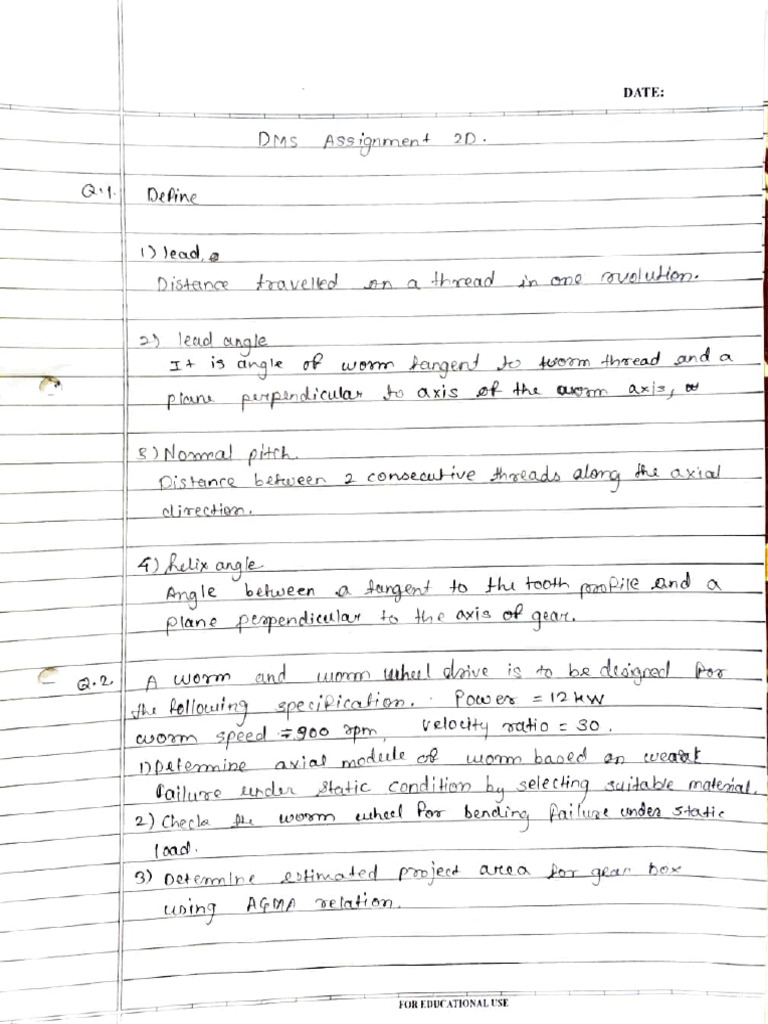 DATE:
DMS Assignment 2D.
Q.1. Define
1) lead,
Distance travelled on a thread in one rvolution.
2) lead angle
It is angle of worm tangent to worm thread and a
plane perpendicular to axis of the worm axis,
3) Normal pitch.
Distance between 2 consecutive threads along the axial
direction.
4) helix angle
Angle between a tangent to the tooth profile and a
plane perpendicular to the axis of gear.
Q.2. A worm and worm wheel drive is to be designed for
the following specification. Power = 12 kW
worm speed = 900 rpm, velocity ratio = 30.
1) Determine axial module of worm based on
failure under static condition by selecting suitable material.
2) Check the worm wheel for bending failure under static
load.
3) Determine estimated project area for gear box
using AGMA relation.
FOR EDUCATIONAL USE